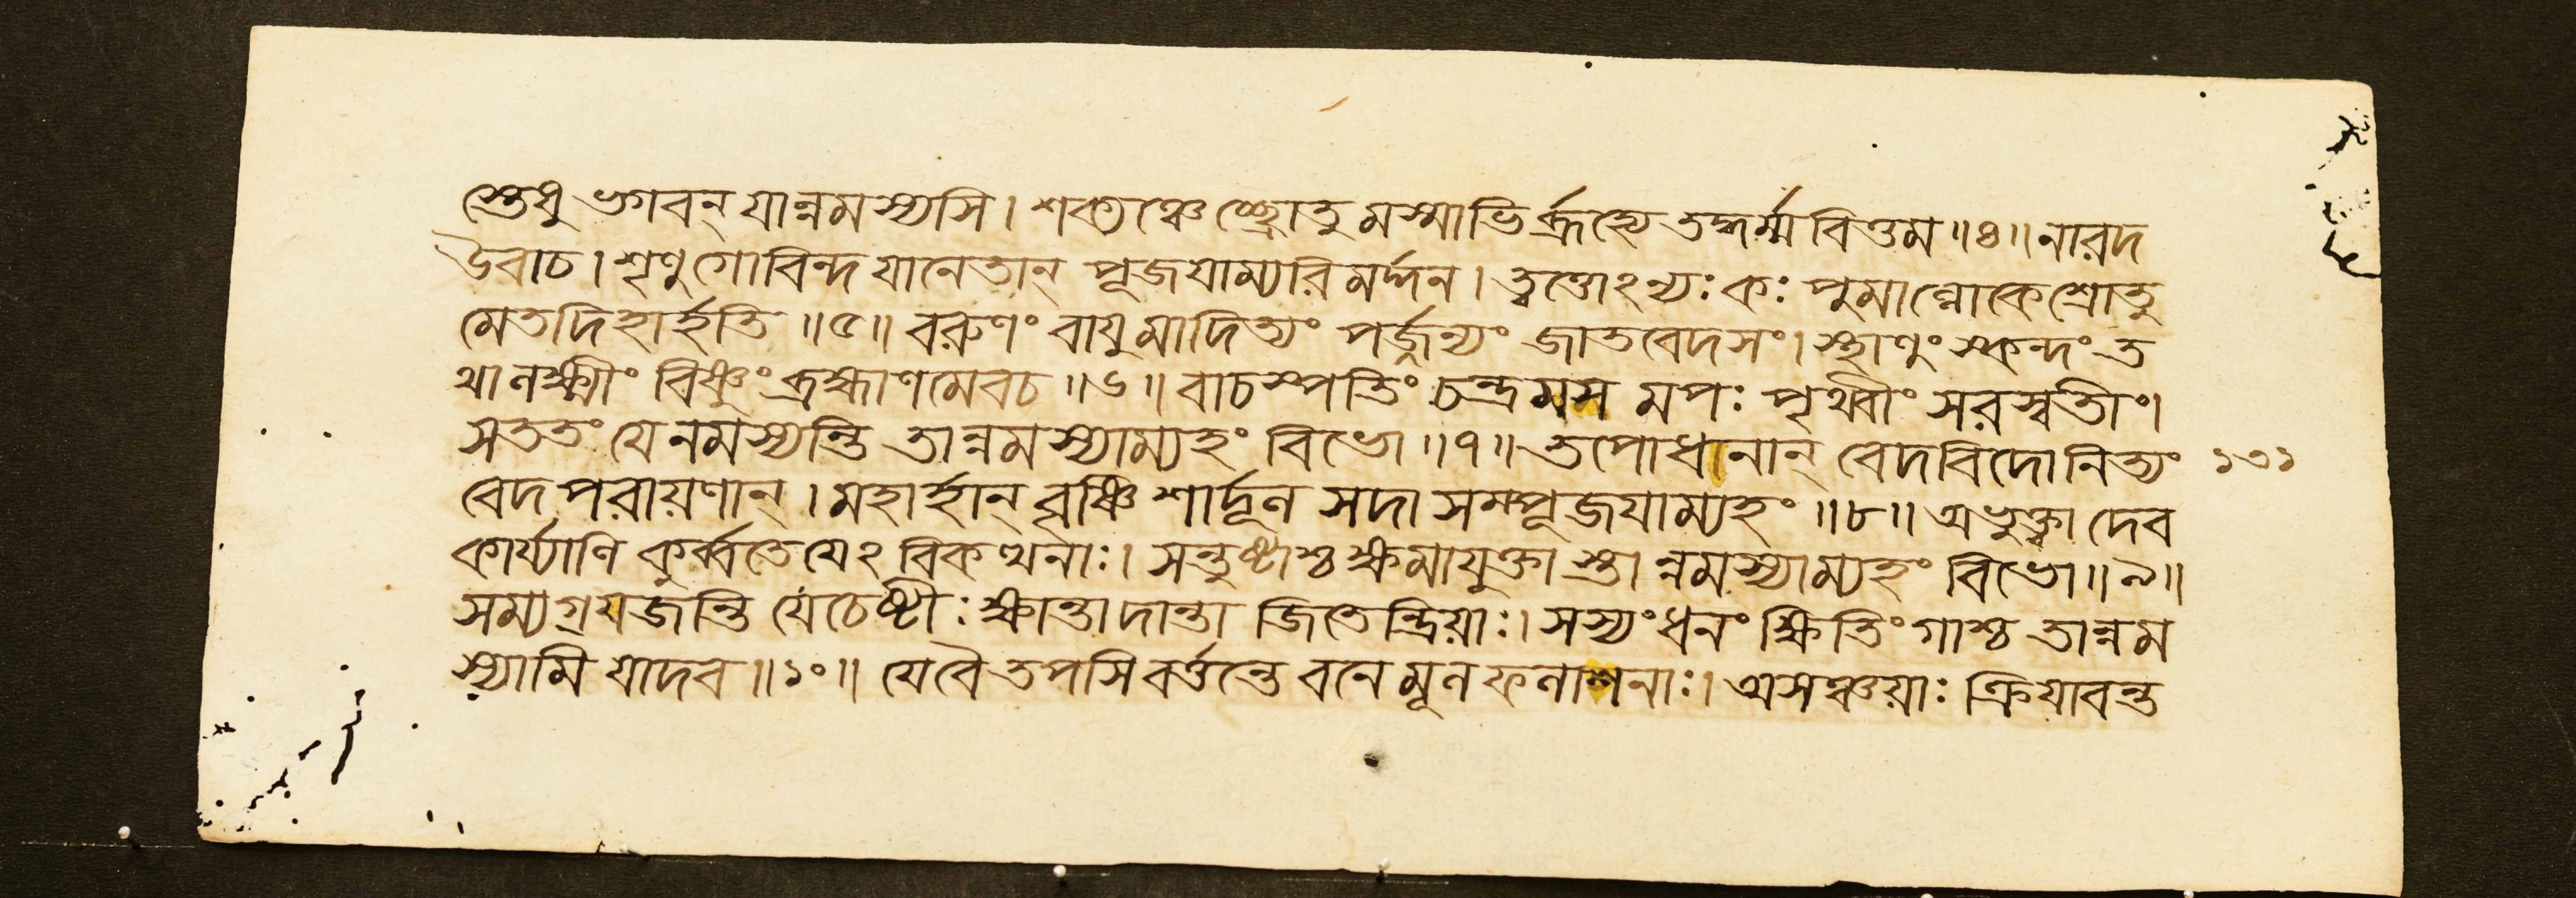 স্তেষু ভগবন্ যান্নমস্যসি। শক্যঞ্চেচ্ছ্রোতুমস্মাভির্ব্রূহ্যেতদ্ধর্ম্মবিত্তম॥৪॥নারদ
উবাচ। শৃণু গোবিন্দ যানেতান্ পূজয়াম্যরিমর্দ্দন। ত্বত্তোঽন্যঃ কঃ পুমাল্লোকে শ্রোতু
মেতদিহার্হতি॥৫॥ বরুণং বায়ুমাদিত্যং পর্জ্জন্যং জাতবেদসং। স্থাণুং স্কন্দং ত
থা লক্ষ্মীং বিষ্ণুং ব্রহ্মাণমেবচ॥৬॥ বাচস্পতিং চন্দ্রমসমপঃ পৃথ্বীং সরস্বতীং।
সততং যে নমস্যন্তি তান্নমস্যাম্যহং বিভো॥৭॥ তপোধানান্ বেদবিদো নিত্যং ১৩১
বেদপরায়ণান্। মহার্হান্ বৃষ্ণিশার্দ্দূল সদা সম্পূজয়াম্যহং॥৮॥ অভুক্ত্বা দেব
কার্য্যাণি কুর্ব্বতে যেঽবিকত্থনাঃ। সন্তুষ্টাশ্চ ক্ষমাযুক্তাস্তান্নমস্যাম্যহং বিভো॥৯॥
সম্যগ্রযজন্তি যেচেষ্টীঃ ক্ষান্তাদান্তা জিতেন্দ্রিয়াঃ। সস্যং ধনং ক্ষিতিং গাশ্চ তান্নম
স্যামি যাদব॥১০॥ যেবৈ তপসি বর্ত্তন্তে বনে মূলফলাশনাঃ। অসঞ্চয়াঃ ক্রিয়াবন্ত